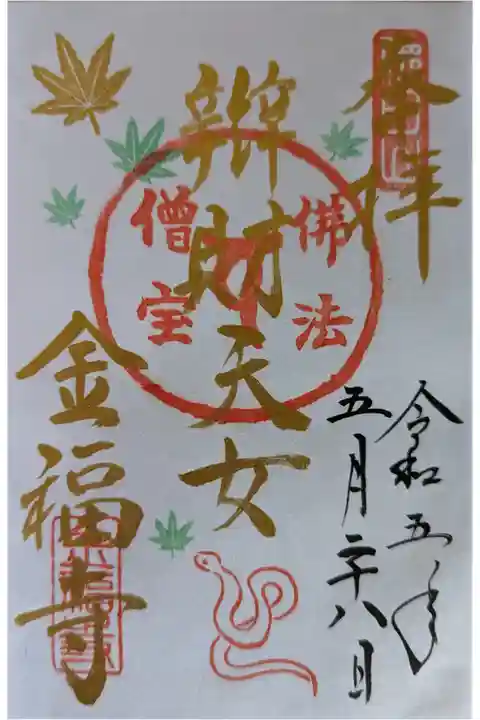 奉拝
令和五年
五月二十八日
佛法
僧宝
辨財天女
金福寺